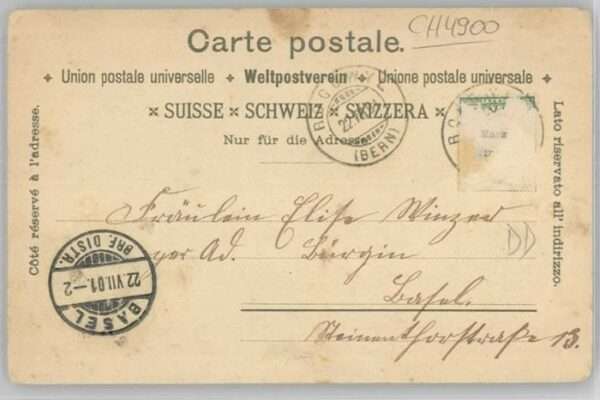 CH4900
Carte postale.
Union postale universelle + Weltpostverein + Unione postale universale +
× SUISSE × SCHWEIZ × SVIZZERA ×
Nur für die Adresse.
Côté réservé à l'adresse.
Lato riservato all' indirizzo.
(BERN)
Fräulein Elise Winzer
per Ad. Bürgin
Basel.
Steinenthorstraße 13.
DD
BRF. DISTR.
22.VII.01.-2
BASEL